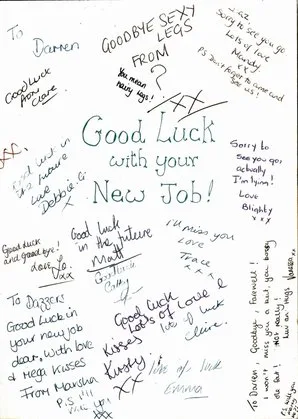 To
Darren
GOODBYE SEXY
LEGS
FROM
?
You mean
hairy legs!
xxx
Sorry to see you go
Lots of love
Mandy
xx
P.S Don't forget to come and
see us!
Good Luck
from
Claire.
Good Luck
with your
New Job!
Good luck in
the future
Love
Debbie
Sorry to
see you go,
actually
I'm lying!
Love
Blighty
xx
Good luck
and good bye!
love
xxx
Good luck
in the future
Matt
Good luck
I'll miss you
Love
Trace
xxx
To DAZZERS
Good Luck in
your new job
dear, with love
& Mega Kisses
From Marsha
P.S I'll
miss you
Good luck
Lots of Love &
Kisses
Kirsty
xx
lots of luck
Claire.
lots of luck
Emma
To Darren, Goodbye, Farewell!
I won't miss you a bit, you
old fart! Not really!
luv an hugs